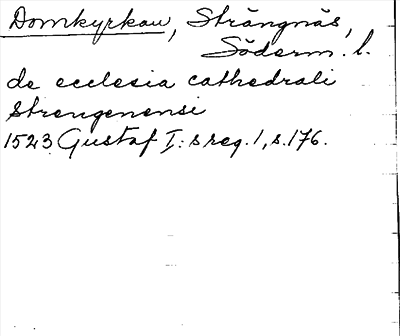 Domkyrkan, Strängnäs,
Söderm. l.
de ecclesia cathedrali
Strengenensi
1523 Gustaf I:s reg. 1, s. 176.